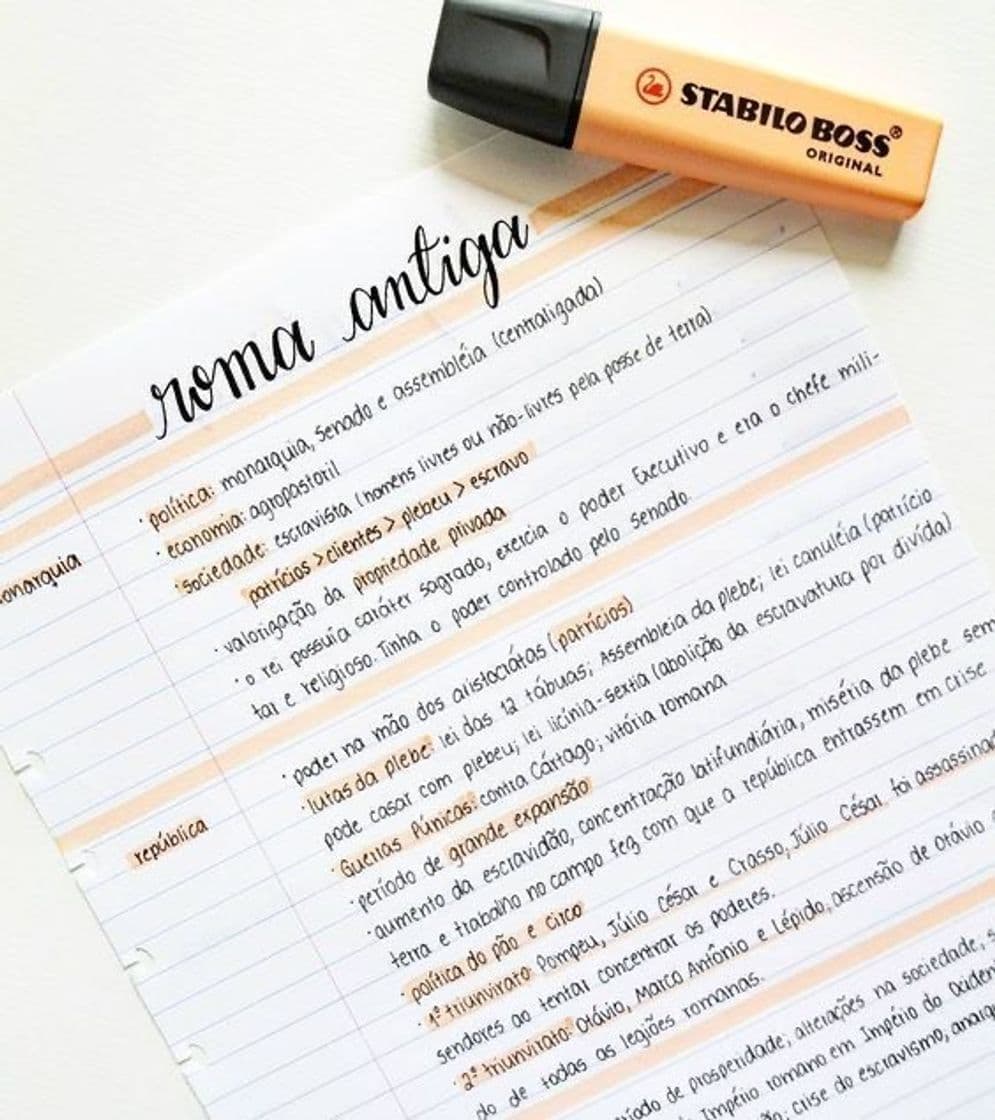 STABILO BOSS®
ORIGINAL
roma antiga
· política: monarquia, senado e assembléia (centralizada)
· economia: agropastoril
· sociedade: escravista (homens livres ou não-livres pela posse de terra)
patrícios > clientes > plebeu > escravo
· valorização da propriedade privada
· o rei possuía caráter sagrado, exercia o poder Executivo e era o chefe mili-
tar e religioso. Tinha o poder controlado pelo senado.
onarquia
· poder na mão dos aristocrátas (patrícios)
· lutas da plebe: lei das 12 tábuas; Assembleia da plebe; lei canuléia (patrício
pode casar com plebeu; lei licínia-sextia (abolição da escravatura por divída)
· Guerras Púnicas: contra Cártago; vitória romana
· período de grande expansão
· aumento da escravidão, concentração latifundiária, miséria da plebe sem
terra e trabalho no campo fez com que a república entrassem em crise
república
· política do pão e circo
· 1º triunvirato: Pompeu, Júlio césar e Crasso, Júlio César foi assassinad
sendores ao tentar concentrar os poderes.
· 2º triunvirato: Otávio, Marco Antônio e Lépido, ascensão de Otávio
do de todas as legiões romanas.
ríodo de prosperidade; alterações na sociedade,
Império romano em Império do Ociden
crise do escravismo, anarq